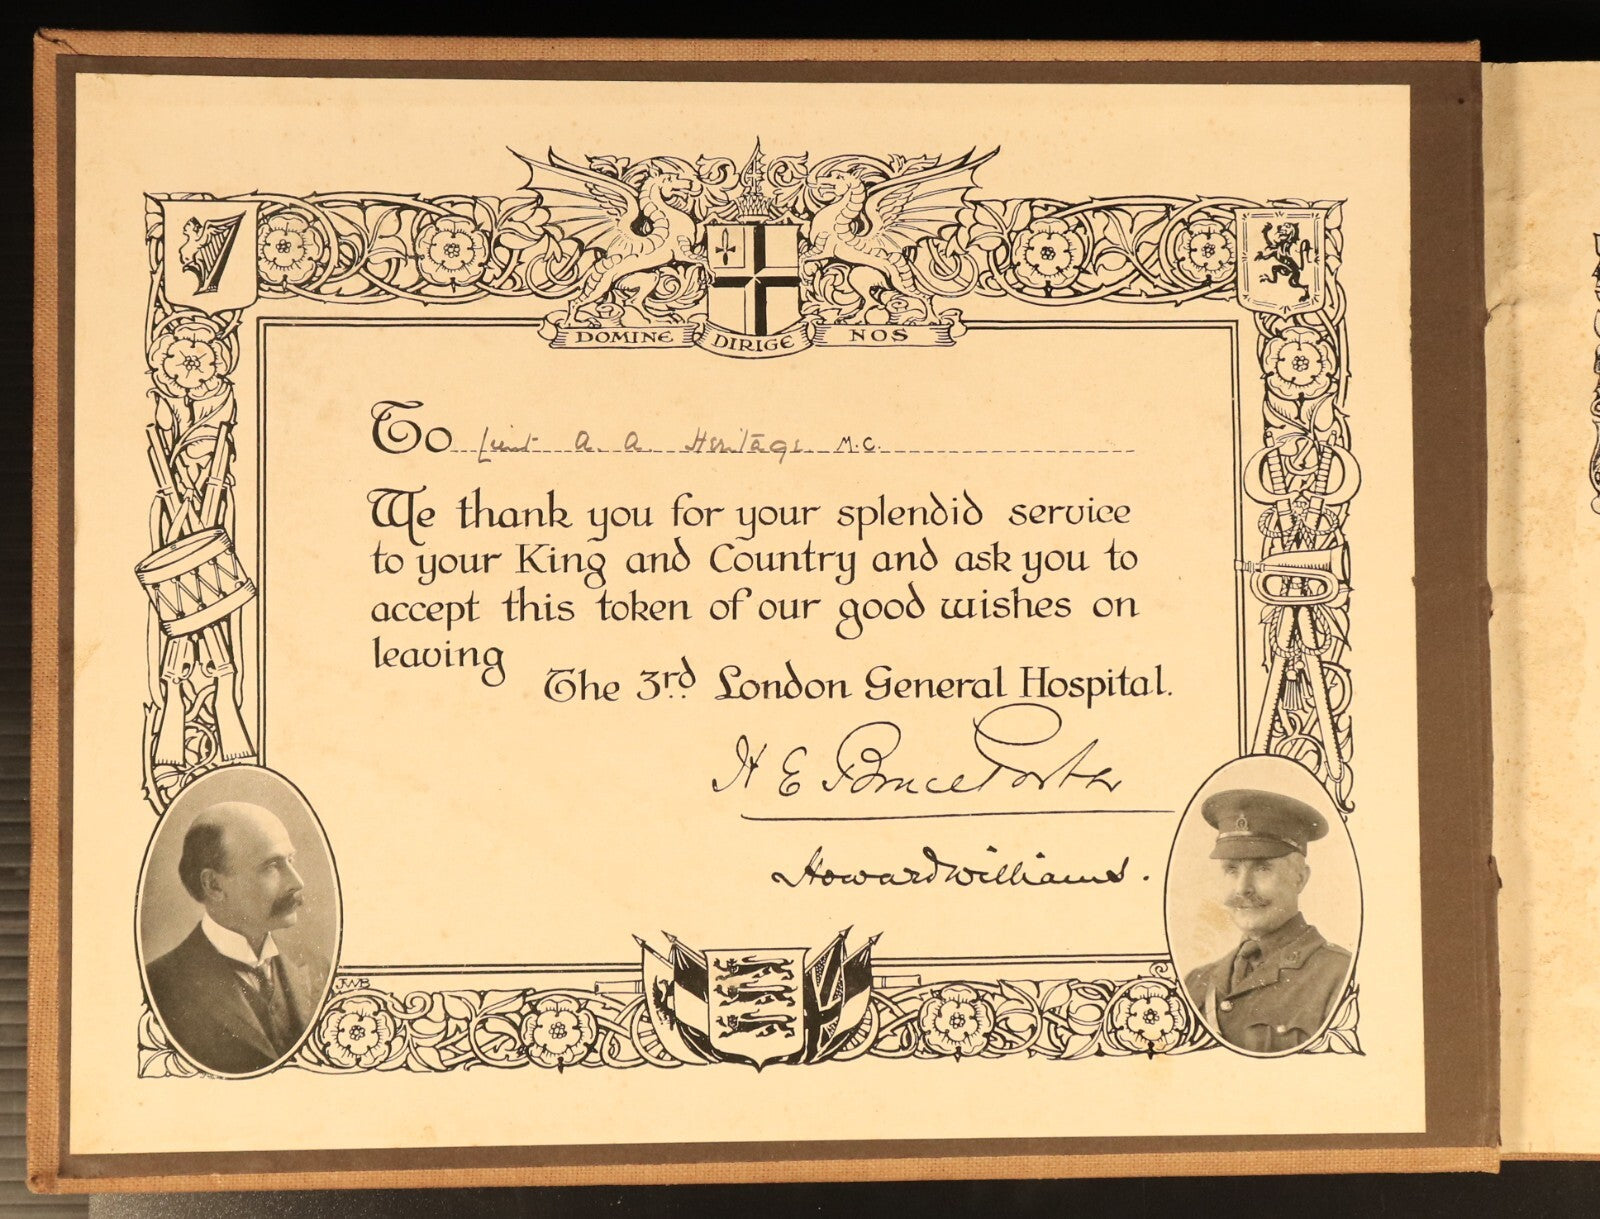 DOMINE DIRIGE NOS
To Lieut A. A. Heritage M.C.
We thank you for your splendid service
to your King and Country and ask you to
accept this token of our good wishes on
leaving
The 3rd London General Hospital.
H E Bruce Porter
Howard Williams.
JWB